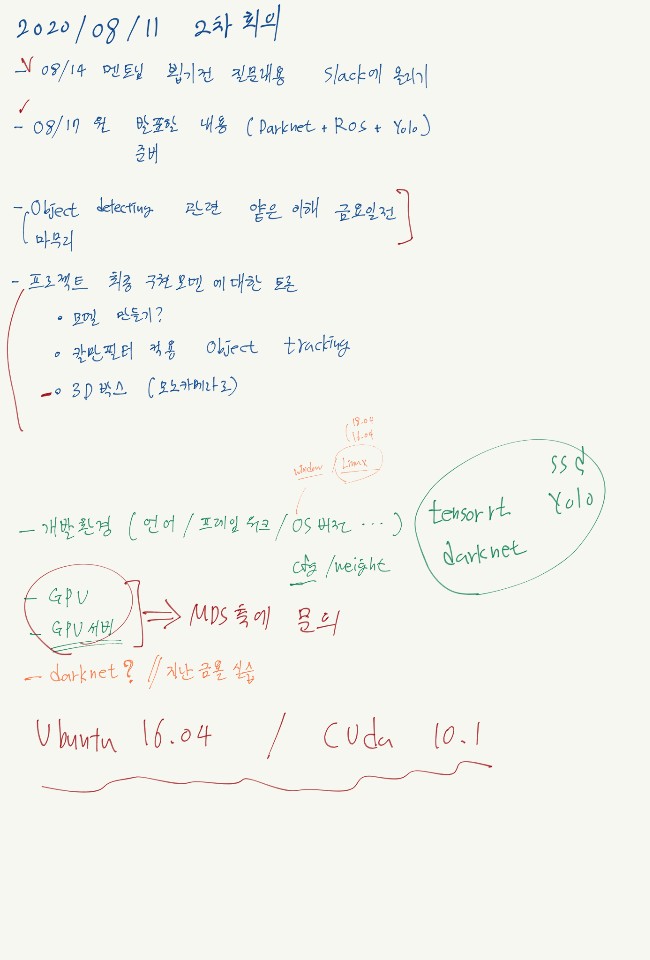 2020/08/11 2차 회의
- 08/14 멘토님 뵙기전 질문내용 Slack에 올리기
- 08/17 월 발표할 내용 (Darknet + ROS + Yolo)
준비
- Object detecting 관련 얕은 이해 금요일전
마무리
- 프로젝트 최종 구현모델에 대한 토론
• 모델 만들기?
• 칼만필터 적용 Object tracking
• 3D 박스 (모노카메라로)
18.04
16.04
window / Linux
ssd
tensorrt Yolo
- 개발환경 (언어 / 프레임워크 / OS 버전 ...)
darknet
cfg / weight
- GPU
- GPU 서버
⇒ MDS측에 문의
- darknet? // 지난 금욜 실습
Ubuntu 16.04 / CUda 10.1